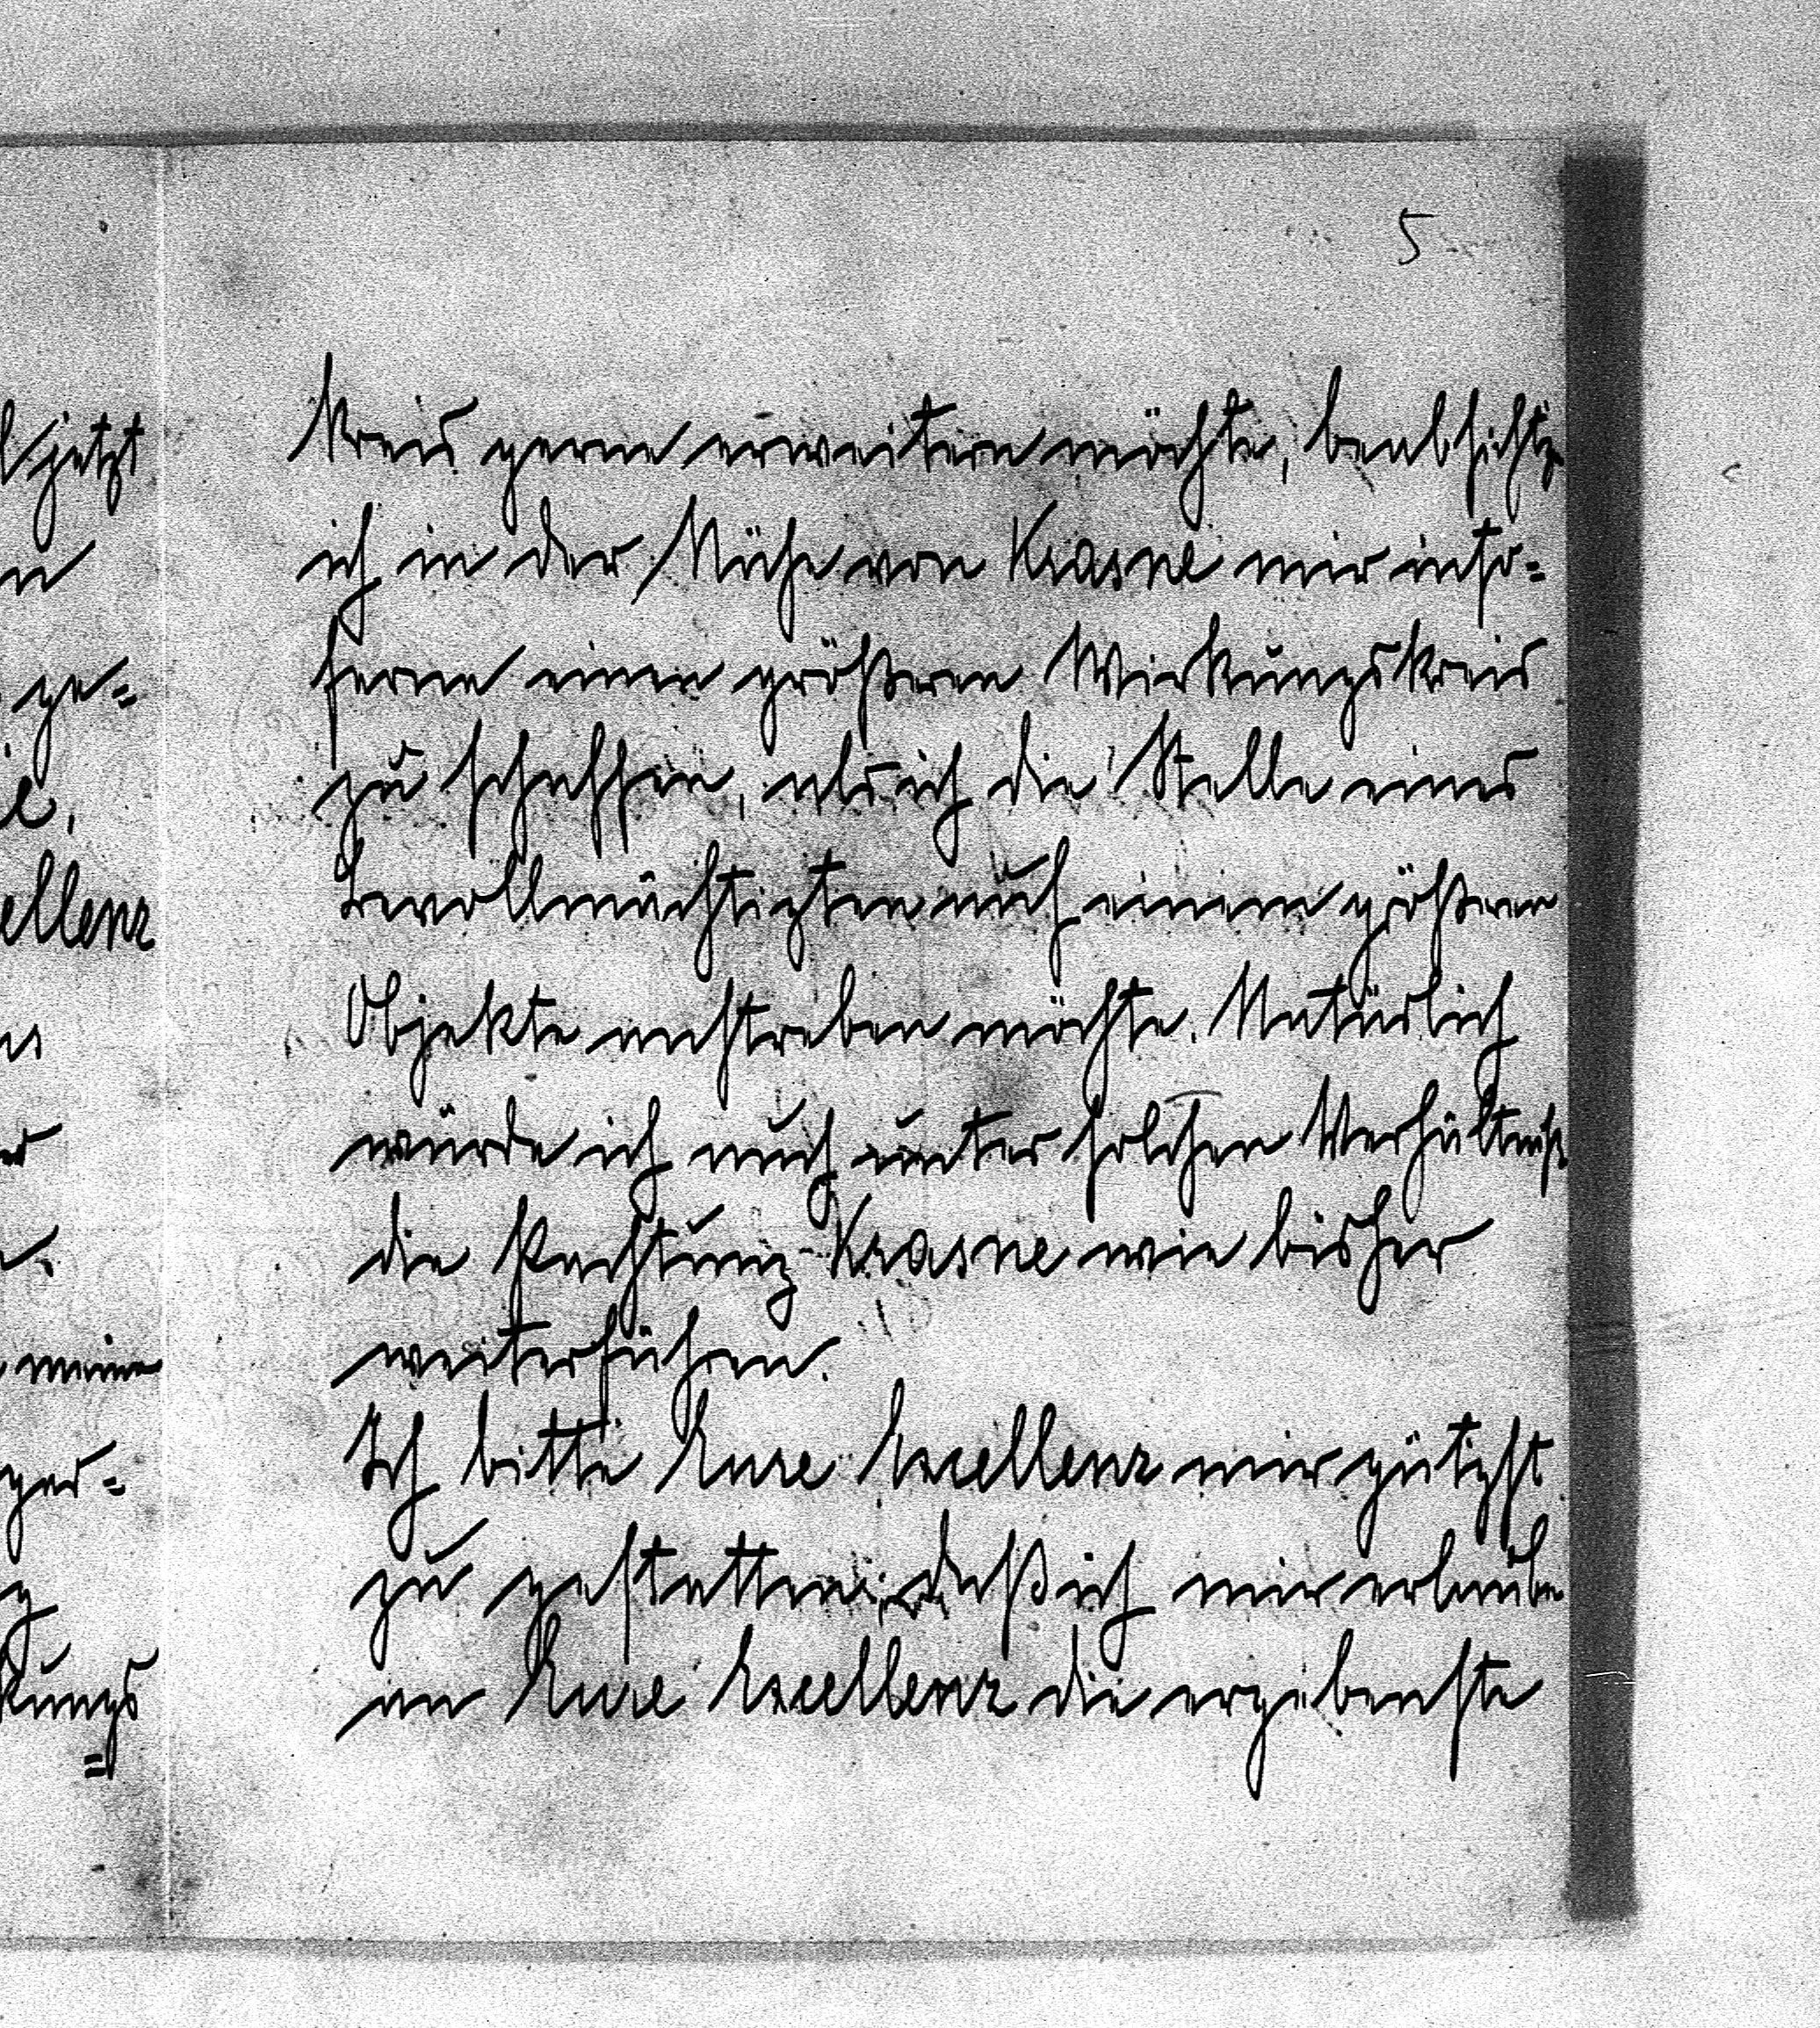 5
kreis gerne erweitern möchte, beabsichtige
ich in der Nähe von Krasne mir inso=
ferne einen größeren Wirkungskreis
zu schaffen, als ich die Stelle eines
Bevollmächtigten auf einem größeren
Objekte anstreben möchte. Natürlich
würde ich auch unter solchen Verhältniß
die Pachtung Krasne wie bisher
weiterführen.
Ich bitte Eure Excellenz mir gütigst
zu gestatten, daß ich mir erlaube
an Eure Excellenz die ergebenste
jetzt
ge=
ellenz
meine
ger=
kungs
=